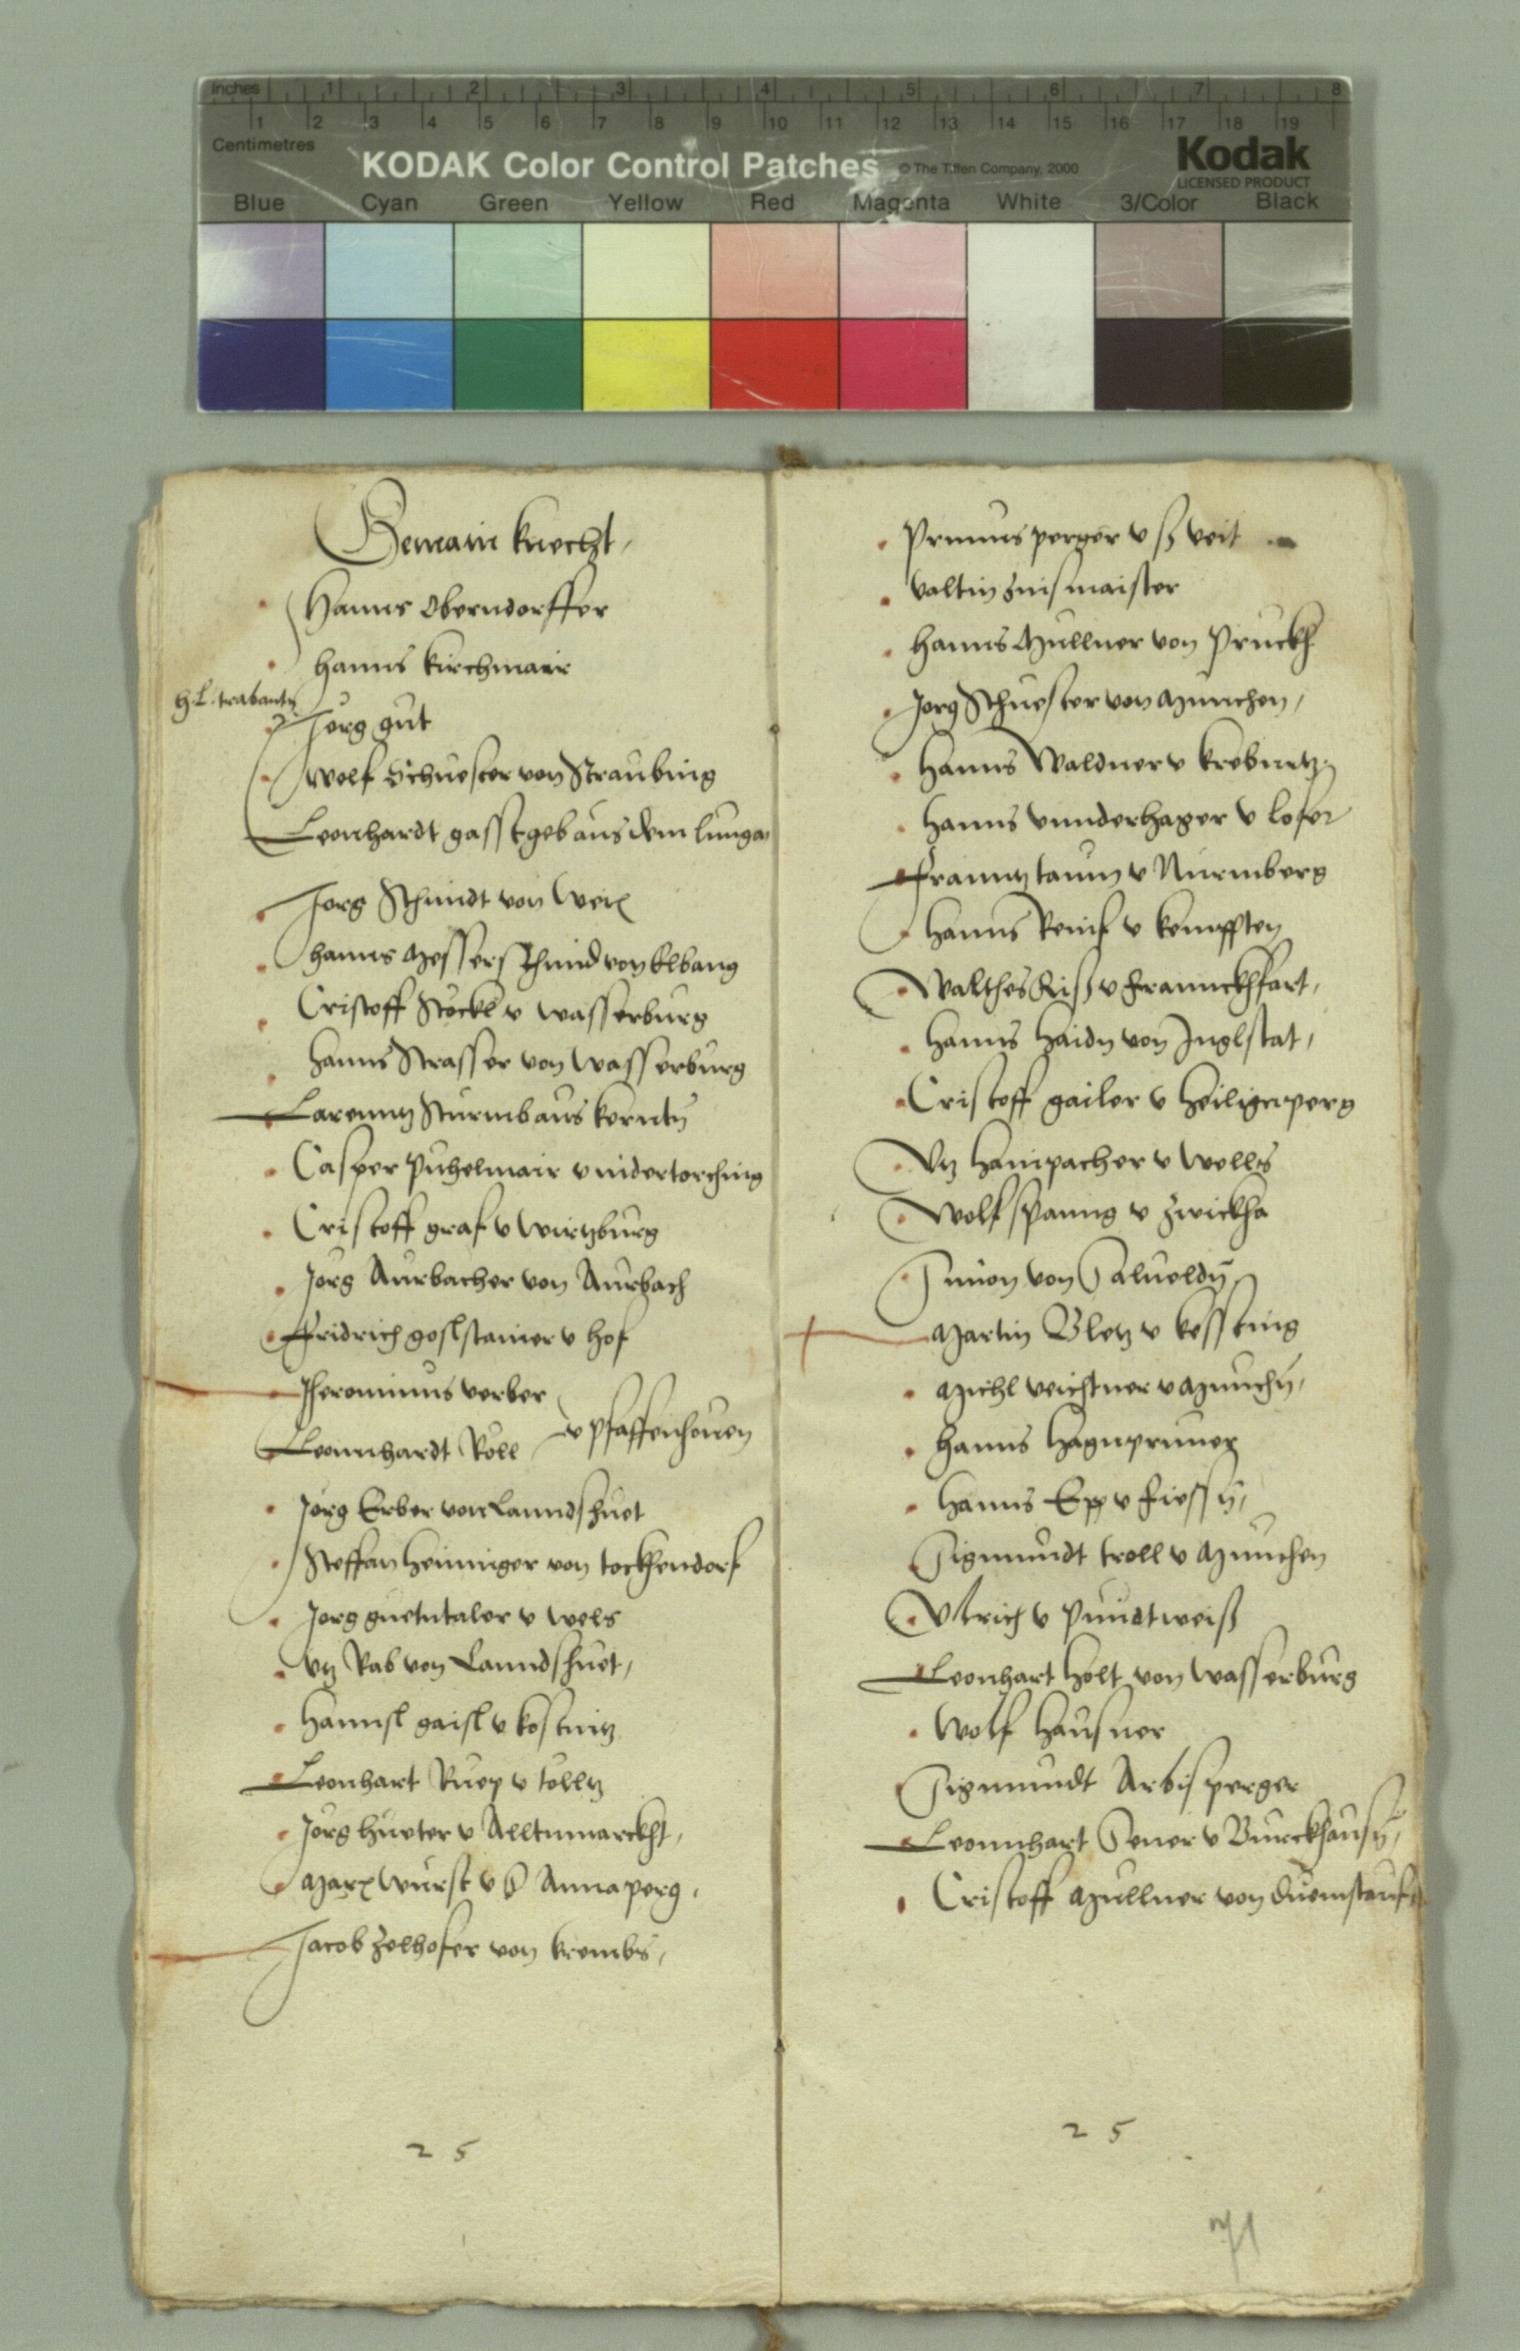 Inches 1 2 3 4 5 6 7 8
1 2 3 4 5 6 7 8 9 10 11 12 13 14 15 16 17 18 19
Centimetres
KODAK Color Control Patches © The Tiffen Company, 2000
Kodak
LICENSED PRODUCT
Blue Cyan Green Yellow Red Magenta White 3/Color Black
Gemain knecht
Hanns Oberndorffer
hanns kirchmair
trabantn
Jorg gut
Wolf Schuester von Straubing
Leonhardt gasstgeb aus dem lunga
Jorg Schmidt von
hanns Messerschmid von Elbang
Cristoff Stöckl v wasserburg
hanns Strasser von Wasserburg
Larenntz Sturmb aus kerntn
Casper Puhelmair v nidertorching
Cristoff graf v Wirtzburg
Jorg Aurbacher von Aurbach
Fridrich goslstainer v hof
Jheronimus verber
v pfaffenhouen
Leonnhardt Röll
Jorg Erber von Lanndshuet
Steffan henninger von tockhendorf
Jorg guetntaler v wels
Utz Rab von Lanndshuet
Hannsl gaisl v kostnitz
Leonhart Ruep v tölltz
Jorg hueter v Alltnmarckht
Marx Wurst v S Annaperg
Jacob Zelhofer von krembs
25
Primus perger v S veit
Valtin Zinsmaister
hanns Mullner von Pruckh
Jorg Schuester von Munchen
Hanns Waldner v
hanns vnnderhager v lofer
Franntz taum v Nurmberg
hanns v kempften
Walthes Riß v Franckhfart
hanns haidn von Inglstat
Cristoff gailer v heiligenperg
Utz hainpacher v Wells
Wolf spanng v Zwickha
Simon von Salueldn
Martin Bletz v kessting
Michl veichtner v Munchn
hanns hagnpruner
hanns Epp v Fiessn
Sigmundt troll v Munchen
Vlrich v Pundtweiß
Leonhart holt von Wasserburg
Wolf hausner
Sigmundt Arbisperger
Leonnhart Sener v Burckhausn
Cristoff Mullner von
25
71